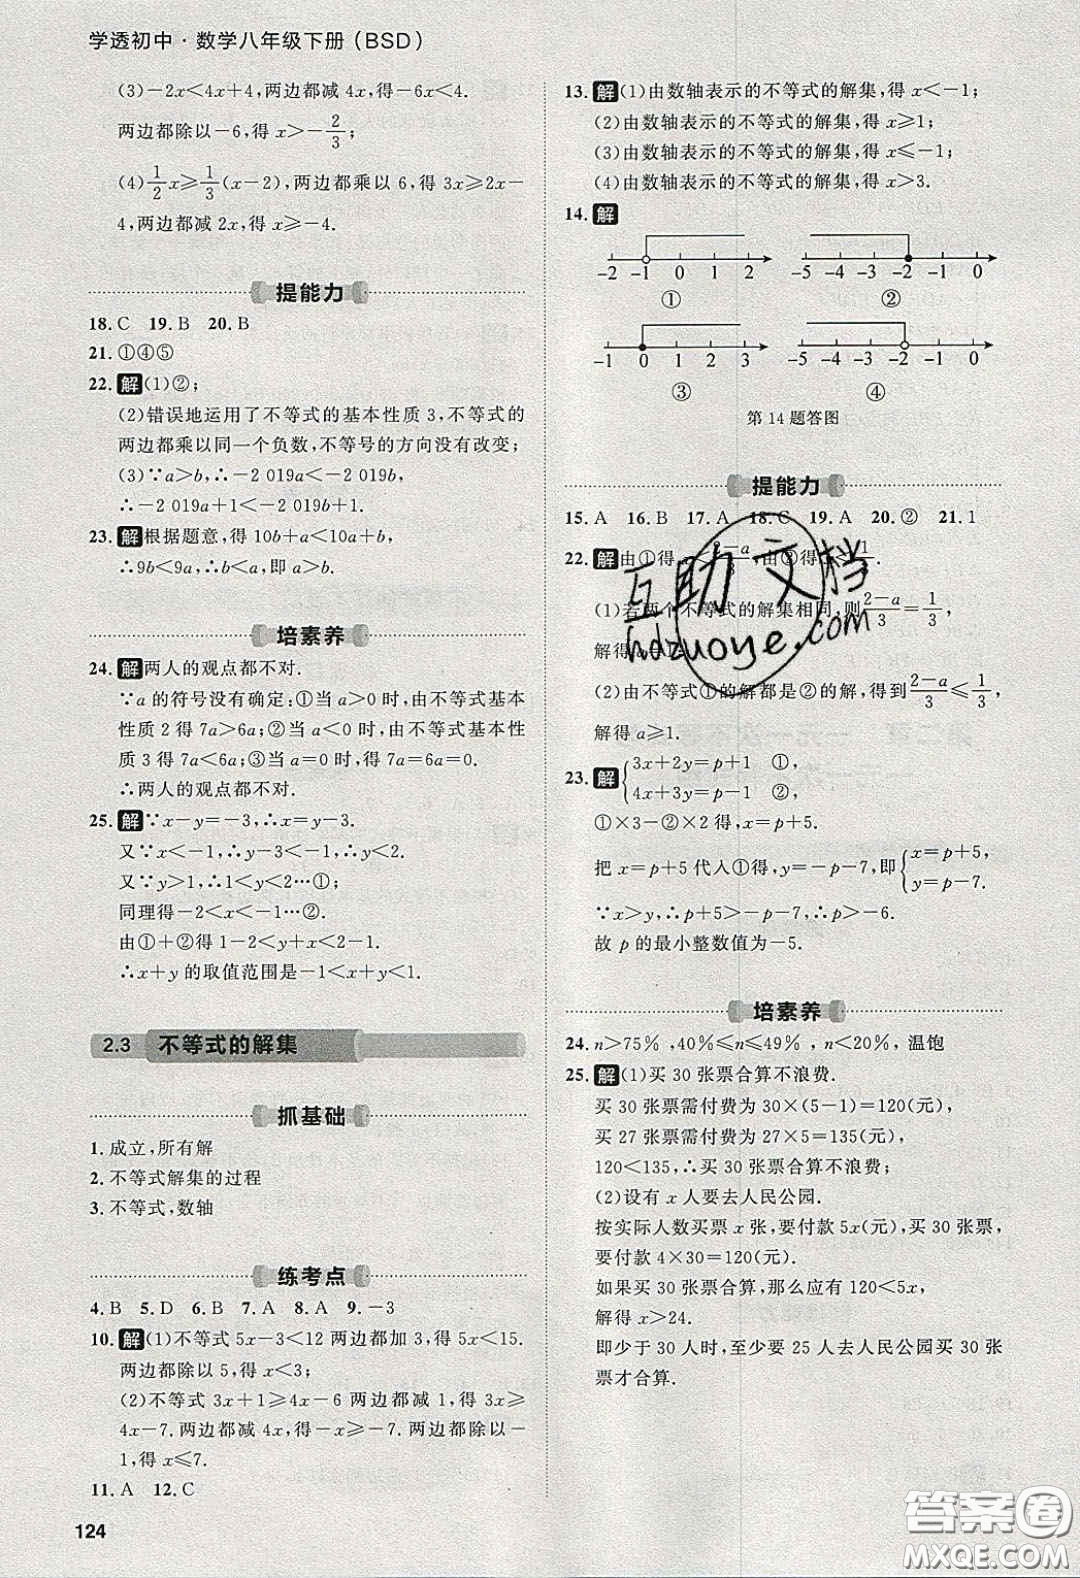 学透初中·数学八年级下册(BSD)
(3)－2x＜4x＋4,两边都减4x,得－6x＜4.
两边都除以－6,得x＞－2/3;
(4)1/2x≥1/3(x－2),两边都乘以6,得3x≥2x－
4,两边都减2x,得x≥－4.
提能力
18.C 19.B 20.B
21.①④⑤
22.解(1)②;
(2)错误地运用了不等式的基本性质3,不等式的
两边都乘以同一个负数,不等号的方向没有改变;
(3)∵a＞b,∴－2 019a＜－2 019b,
∴－2 019a＋1＜－2 019b＋1.
23.解根据题意,得10b＋a＜10a＋b,
∴9b＜9a,∴b＜a,即a＞b.
培素养
24.解两人的观点都不对.
∵a的符号没有确定:①当a＞0时,由不等式基本
性质2得7a＞6a;②当a＜0时,由不等式基本性
质3得7a＜6a;③当a＝0时,得7a＝6a＝0.
∴两人的观点都不对.
25.解∵x－y＝－3,∴x＝y－3.
又∵x＜－1,∴y－3＜－1,∴y＜2.
又∵y＞1,∴1＜y＜2…①;
同理得－2＜x＜－1…②.
由①＋②得1－2＜y＋x＜2－1,
∴x＋y的取值范围是－1＜x＋y＜1.
2.3 不等式的解集
抓基础
1.成立,所有解
2.不等式解集的过程
3.不等式,数轴
练考点
4.B 5.D 6.B 7.A 8.A 9.－3
10.解(1)不等式5x－3＜12两边都加3,得5x＜15.
两边都除以5,得x＜3;
(2)不等式3x＋1≥4x－6两边都减1,得3x≥
4x－7.两边都减4x,得－x≥－7.两边都除以－
1,得x≤7.
11.A 12.C
124
13.解(1)由数轴表示的不等式的解集,得x＜－1;
(2)由数轴表示的不等式的解集,得x≥1;
(3)由数轴表示的不等式的解集,得x≤－1;
(4)由数轴表示的不等式的解集,得x＞3.
14.解
－2 －1 0 1 2 －5 －4 －3 －2 －1 0
① ②
－1 0 1 2 3 －5 －4 －3 －2 －1 0
③ ④
第14题答图
提能力
15.A 16.B 17.A 18.C 19.A 20.② 21.1
22.解由①得x＜(2－a)/3,由②得x＜1/3.
(1)若两个不等式的解集相同,则(2－a)/3＝1/3,
解得a＝1.
(2)由不等式①的解都是②的解,得到(2－a)/3≤1/3,
解得a≥1.
23.解{3x＋2y＝p＋1 ①,
4x＋3y＝p－1 ②,
①×3－②×2得,x＝p＋5.
把x＝p＋5代入①得,y＝－p－7,即{x＝p＋5,
y＝－p－7.
∵x＞y,∴p＋5＞－p－7,∴p＞－6.
故p的最小整数值为－5.
培素养
24.n＞75%,40%≤n≤49%,n＜20%,温饱
25.解(1)买30张票合算不浪费.
买30张票需付费为30×(5－1)＝120(元),
买27张票需付费为27×5＝135(元),
120＜135,∴买30张票合算不浪费;
(2)设有x人要去人民公园.
按实际人数买票x张,要付款5x(元),买30张票,
要付款4×30＝120(元),
如果买30张票合算,那么应有120＜5x,
解得x＞24.
即少于30人时,至少要25人去人民公园买30张
票才合算.
互助文档
hdzuoye.com
答案圈
MXQE.COM